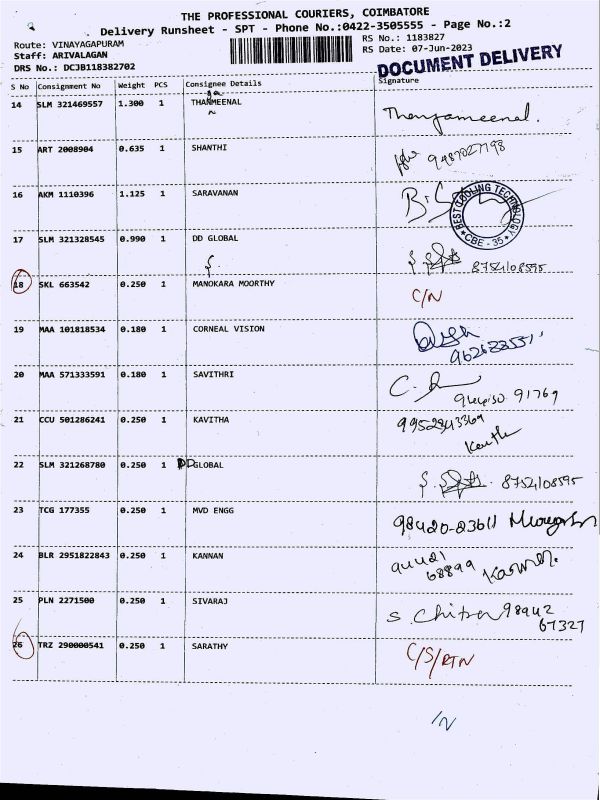 THE PROFESSIONAL COURIERS, COIMBATORE
Delivery Runsheet - SPT - Phone No.:0422-3505555 - Page No.:2
Route: VINAYAGAPURAM RS No.: 1183827
Staff: ARIVALAGAN RS Date: 07-Jun-2023
DRS No.: DCJB118382702 DOCUMENT DELIVERY
S No Consignment No Weight PCS Consignee Details Signature
14 SLM 321469557 1.300 1 THANMEENAL Thangameenal.
15 ART 2008904 0.635 1 SHANTHI 9487027198
16 AKM 1110396 1.125 1 SARAVANAN B.S BEST COOLING TECHNOLOGY * CBE - 35 *
17 SLM 321328545 0.990 1 DD GLOBAL 8754108595
18 SKL 663542 0.250 1 MANOKARA MOORTHY C/N
19 MAA 101818534 0.180 1 CORNEAL VISION
20 MAA 571333591 0.180 1 SAVITHRI 91769
21 CCU 501286241 0.250 1 KAVITHA 9952943369
22 SLM 321268780 0.250 1 DDGLOBAL 8754108595
23 TCG 177355 0.250 1 MVD ENGG 98420-83611
24 BLR 2951822843 0.250 1 KANNAN 94421
68899
25 PLN 2271500 0.250 1 SIVARAJ S. Chitra 98942
67327
26 TRZ 290000541 0.250 1 SARATHY C/S/RTN